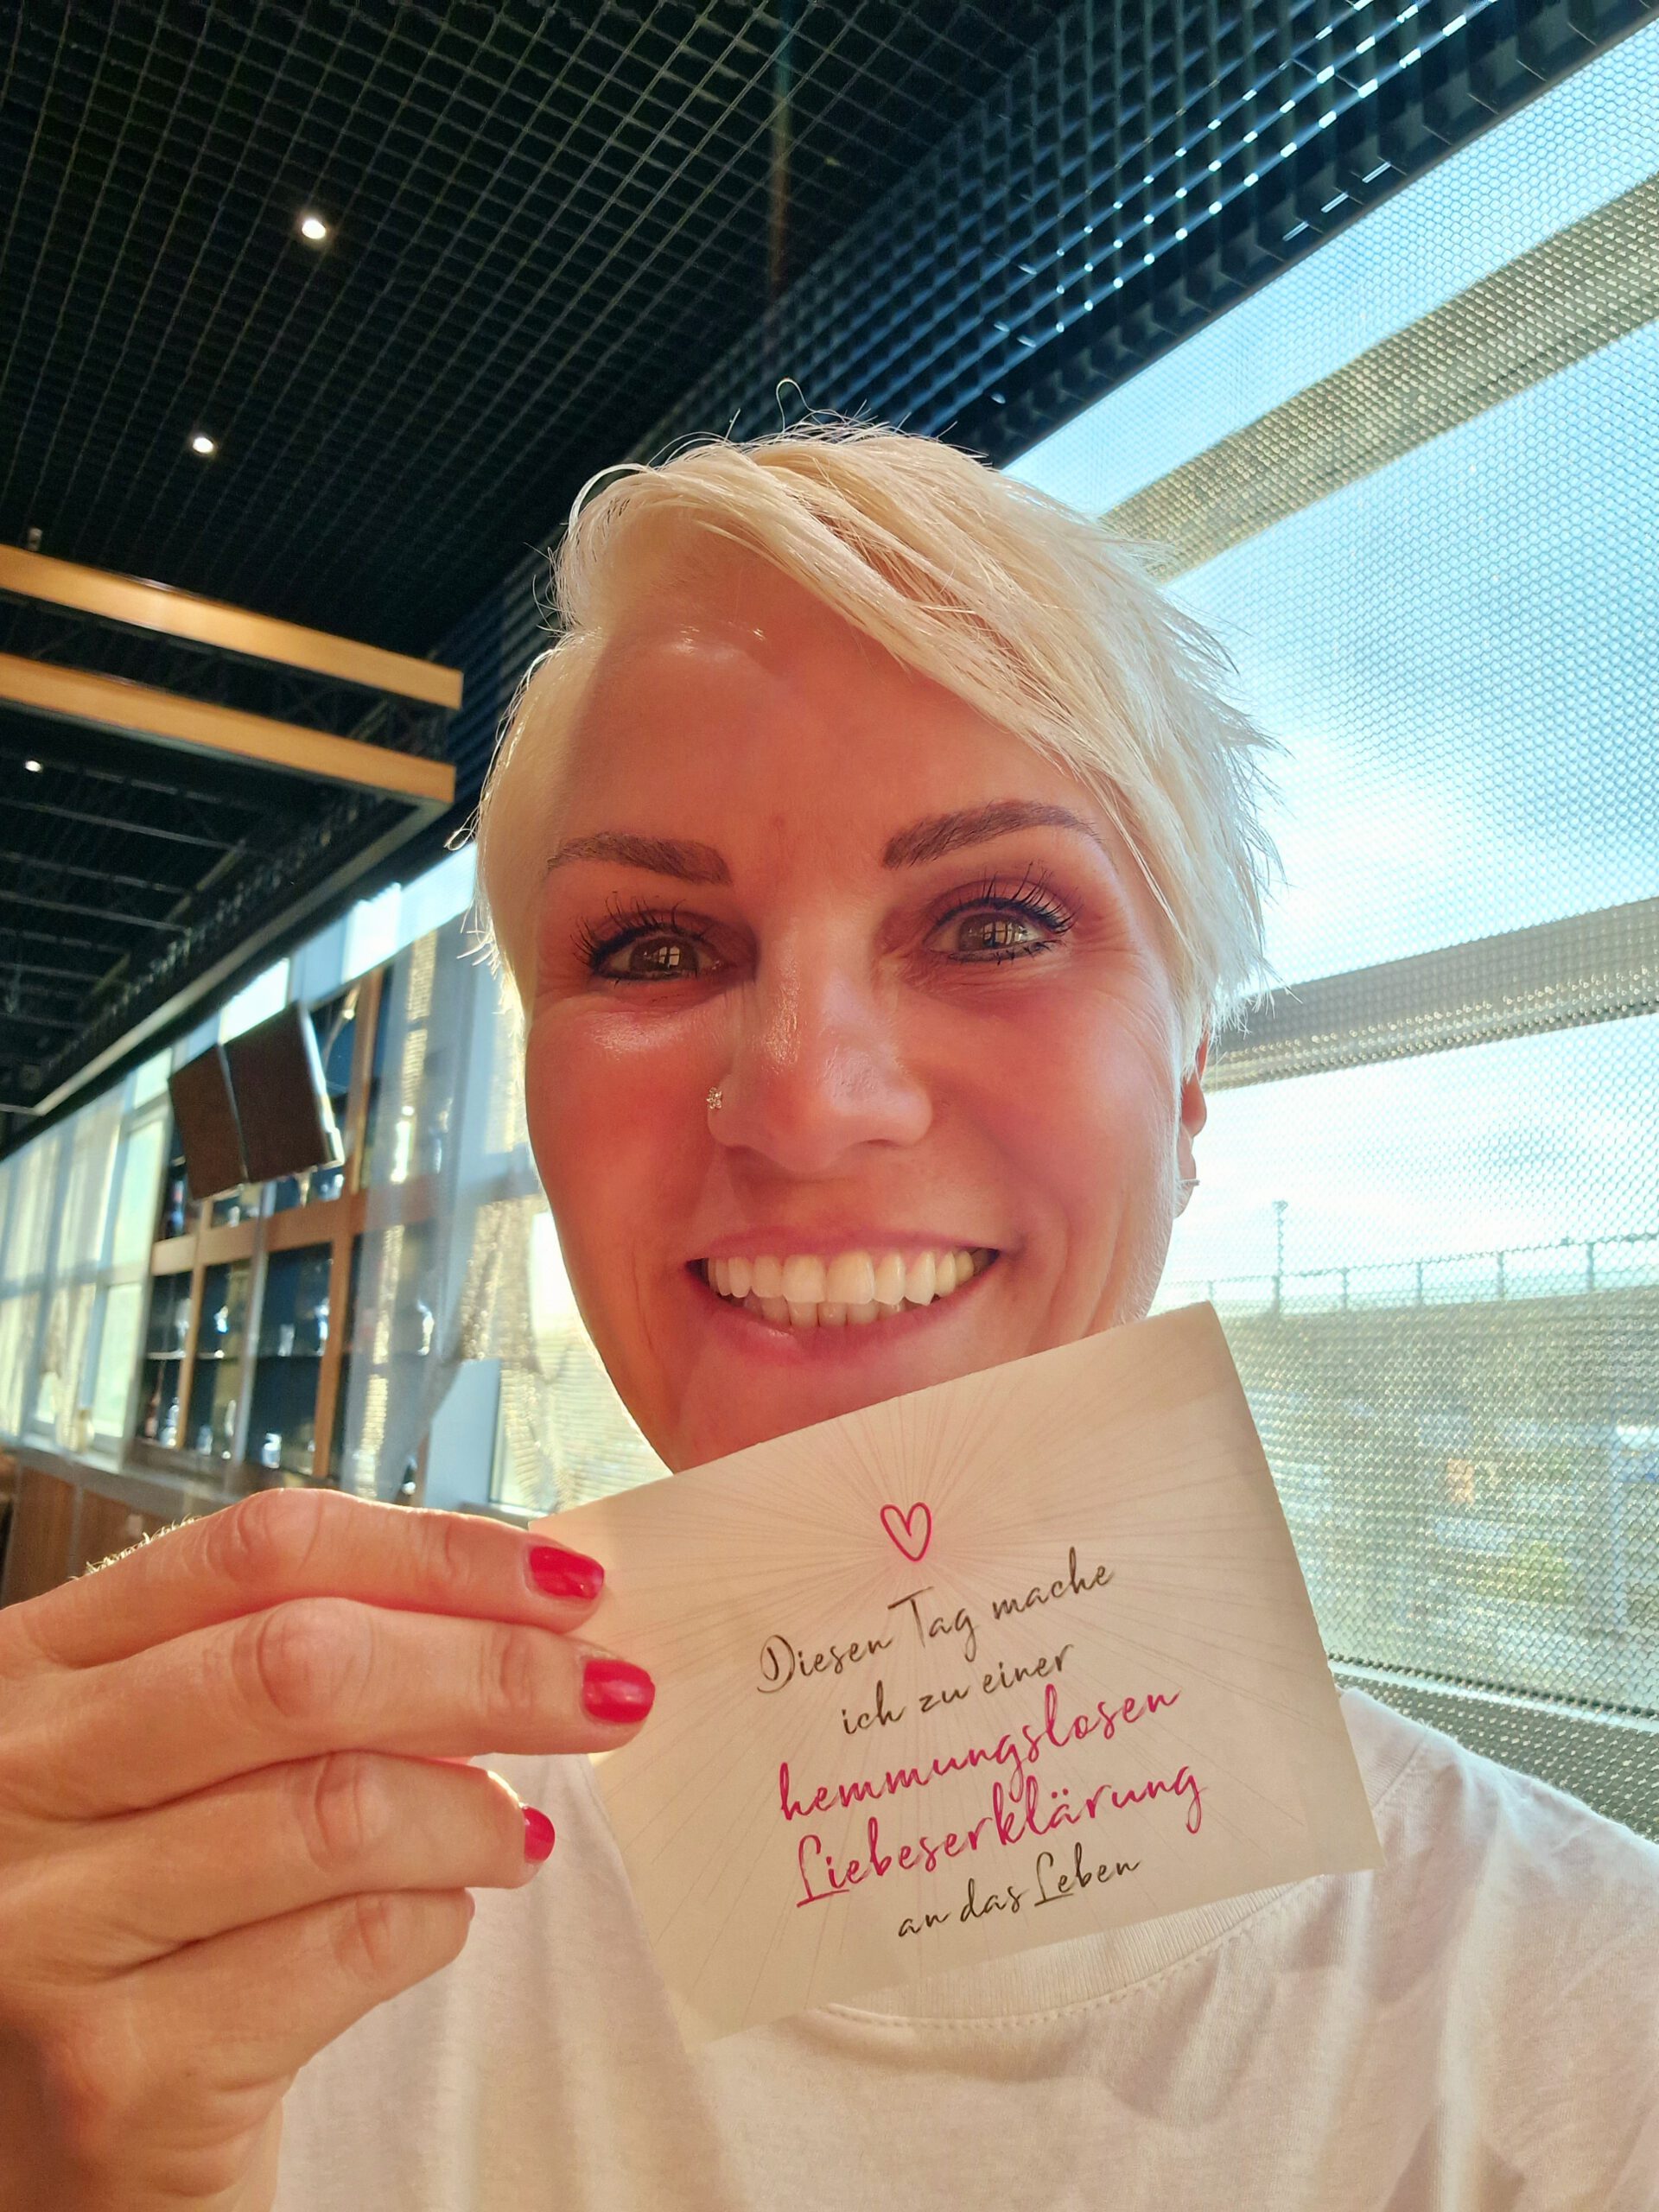 Diesen Tag mache
ich zu einer
hemmungslosen
Liebeserklärung
an das Leben